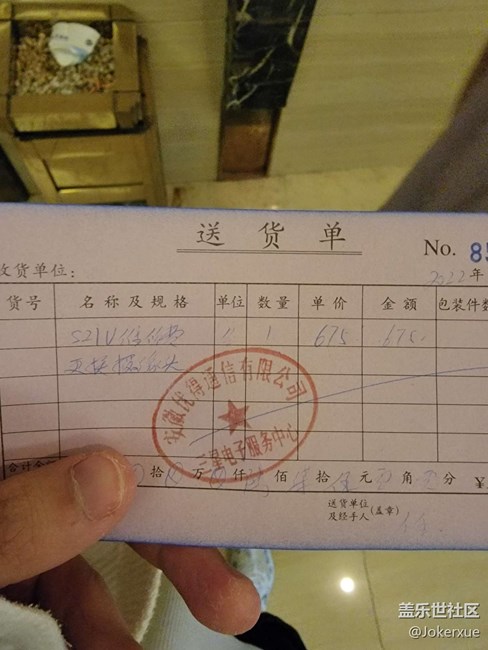 送货单
No. 85
收货单位:
2022年
货号 名称及规格 单位 数量 单价 金额 包装件数
S21U 1 675 675
更换摄像头
安徽优得通信有限公司
三星电子服务中心
合计金额 拾 万 仟 陆佰柒拾伍元 角 分 ¥
送货单位
及经手人(盖章)
盖乐世社区
@Jokerxue